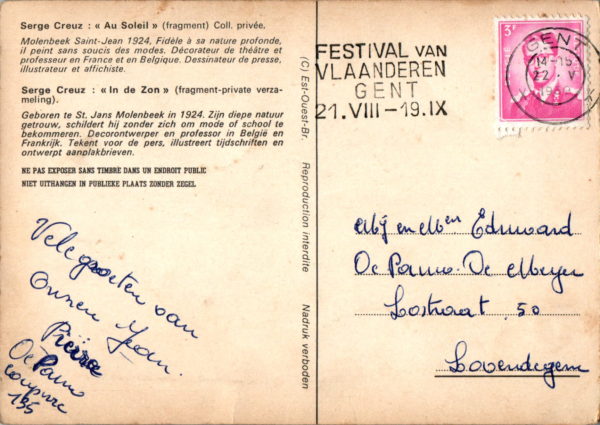 Serge Creuz : « Au Soleil » (fragment) Coll. privée.
Molenbeek Saint-Jean 1924, Fidèle à sa nature profonde,
il peint sans soucis des modes. Décorateur de théâtre et
professeur en France et en Belgique. Dessinateur de presse,
illustrateur et affichiste.
Serge Creuz : « In de Zon » (fragment-private verza-
meling).
Geboren te St. Jans Molenbeek in 1924. Zijn diepe natuur
getrouw, schildert hij zonder zich om mode of school te
bekommeren. Decorontwerper en professor in België en
Frankrijk. Tekent voor de pers, illustreert tijdschriften en
ontwerpt aanplakbrieven.
NE PAS EXPOSER SANS TIMBRE DANS UN ENDROIT PUBLIC
NIET UITHANGEN IN PUBLIEKE PLAATS ZONDER ZEGEL
Vele groeten van
onzen Jean.
Pierre
De Pauw
coupure
195
(C) Est-Ouest-Br. Reproduction interdite Nadruk verboden
FESTIVAL VAN
VLAANDEREN
GENT
21.VIII-19.IX
3F
GENT
14-15
22 V
Mij en Men Edward
De Pauw-De Meyer
Lostraat 50
Lovendegem